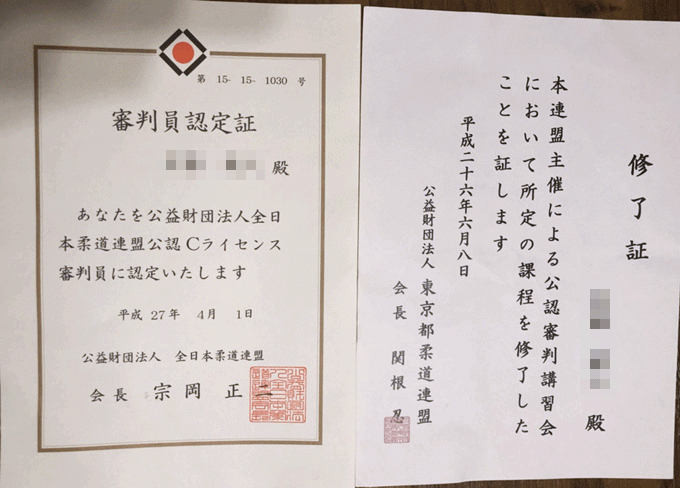 第 15- 15- 1030 号
審判員認定証
殿
あなたを公益財団法人全日
本柔道連盟公認Cライセンス
審判員に認定いたします
平成 27年 4月 1日
公益財団法人 全日本柔道連盟
会長 宗岡 正二
修了証
殿
本連盟主催による公認審判講習会
において所定の課程を修了した
ことを証します
平成二十六年六月八日
公益財団法人 東京都柔道連盟
会長 関根 忍